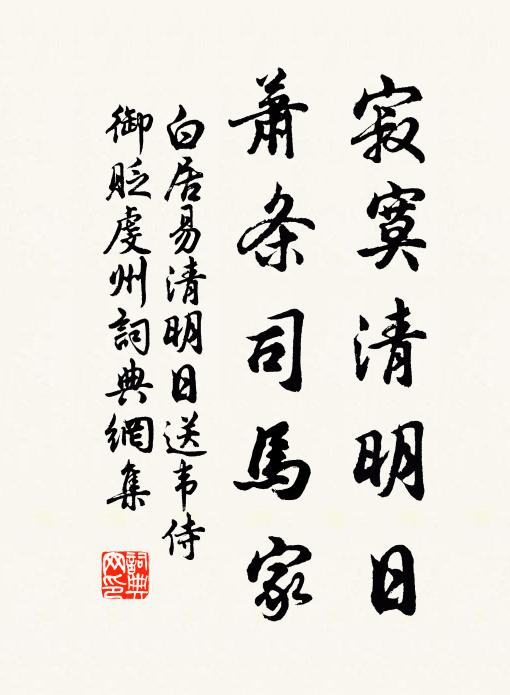 寂寞清明日
蕭条司馬家
白居易清明日送韦侍
御貶虔州詞典網集
詞典网印